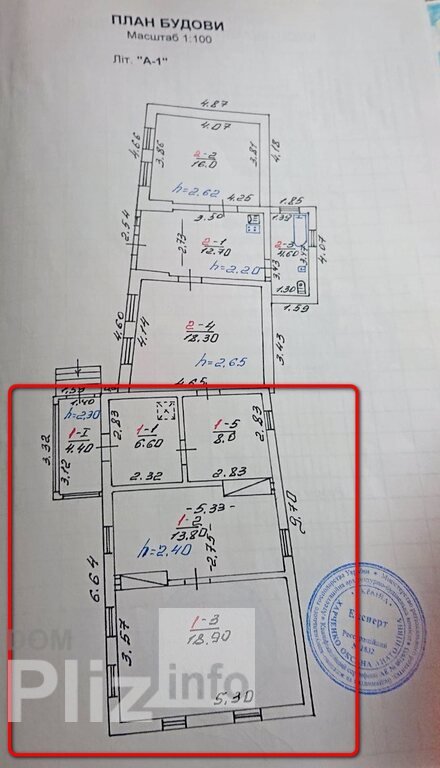 ПЛАН БУДОВИ
Масштаб 1:100
Літ. "А-1"
4.87
4.07
4.66
3.86
2-2
16.0
3.81
4.18
h=2.62
4.25
1.85
2.54
3.50
1.39
2.73
2-1
12.70
2-3
4.60
3.47
4.07
3.43
h=2.20
1.30
1.59
4.60
4.14
2-4
18.30
3.43
h=2.65
4.65
1.40
h=2.30
3.32
3.12
1-I
4.40
2.83
1-1
6.60
1-5
8.0
2.83
2.32
2.83
-5.33-
1-2
13.80
h=2.40
2.75
9.70
6.64
3.57
1-3
18.90
5.30
Експерт
DOM
Pliz info